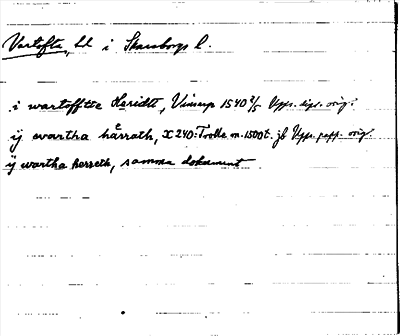 Vartofta, hd i Skaraborgs l.
i wartofftte Haridtt, Vinerp 1540 2/5 Upps. dipl. orig.
ij wartha hårrath, X 240: Trolle m. 1500 t. jb Upps. papp. orig.
ij wartha herreth, samma dokument